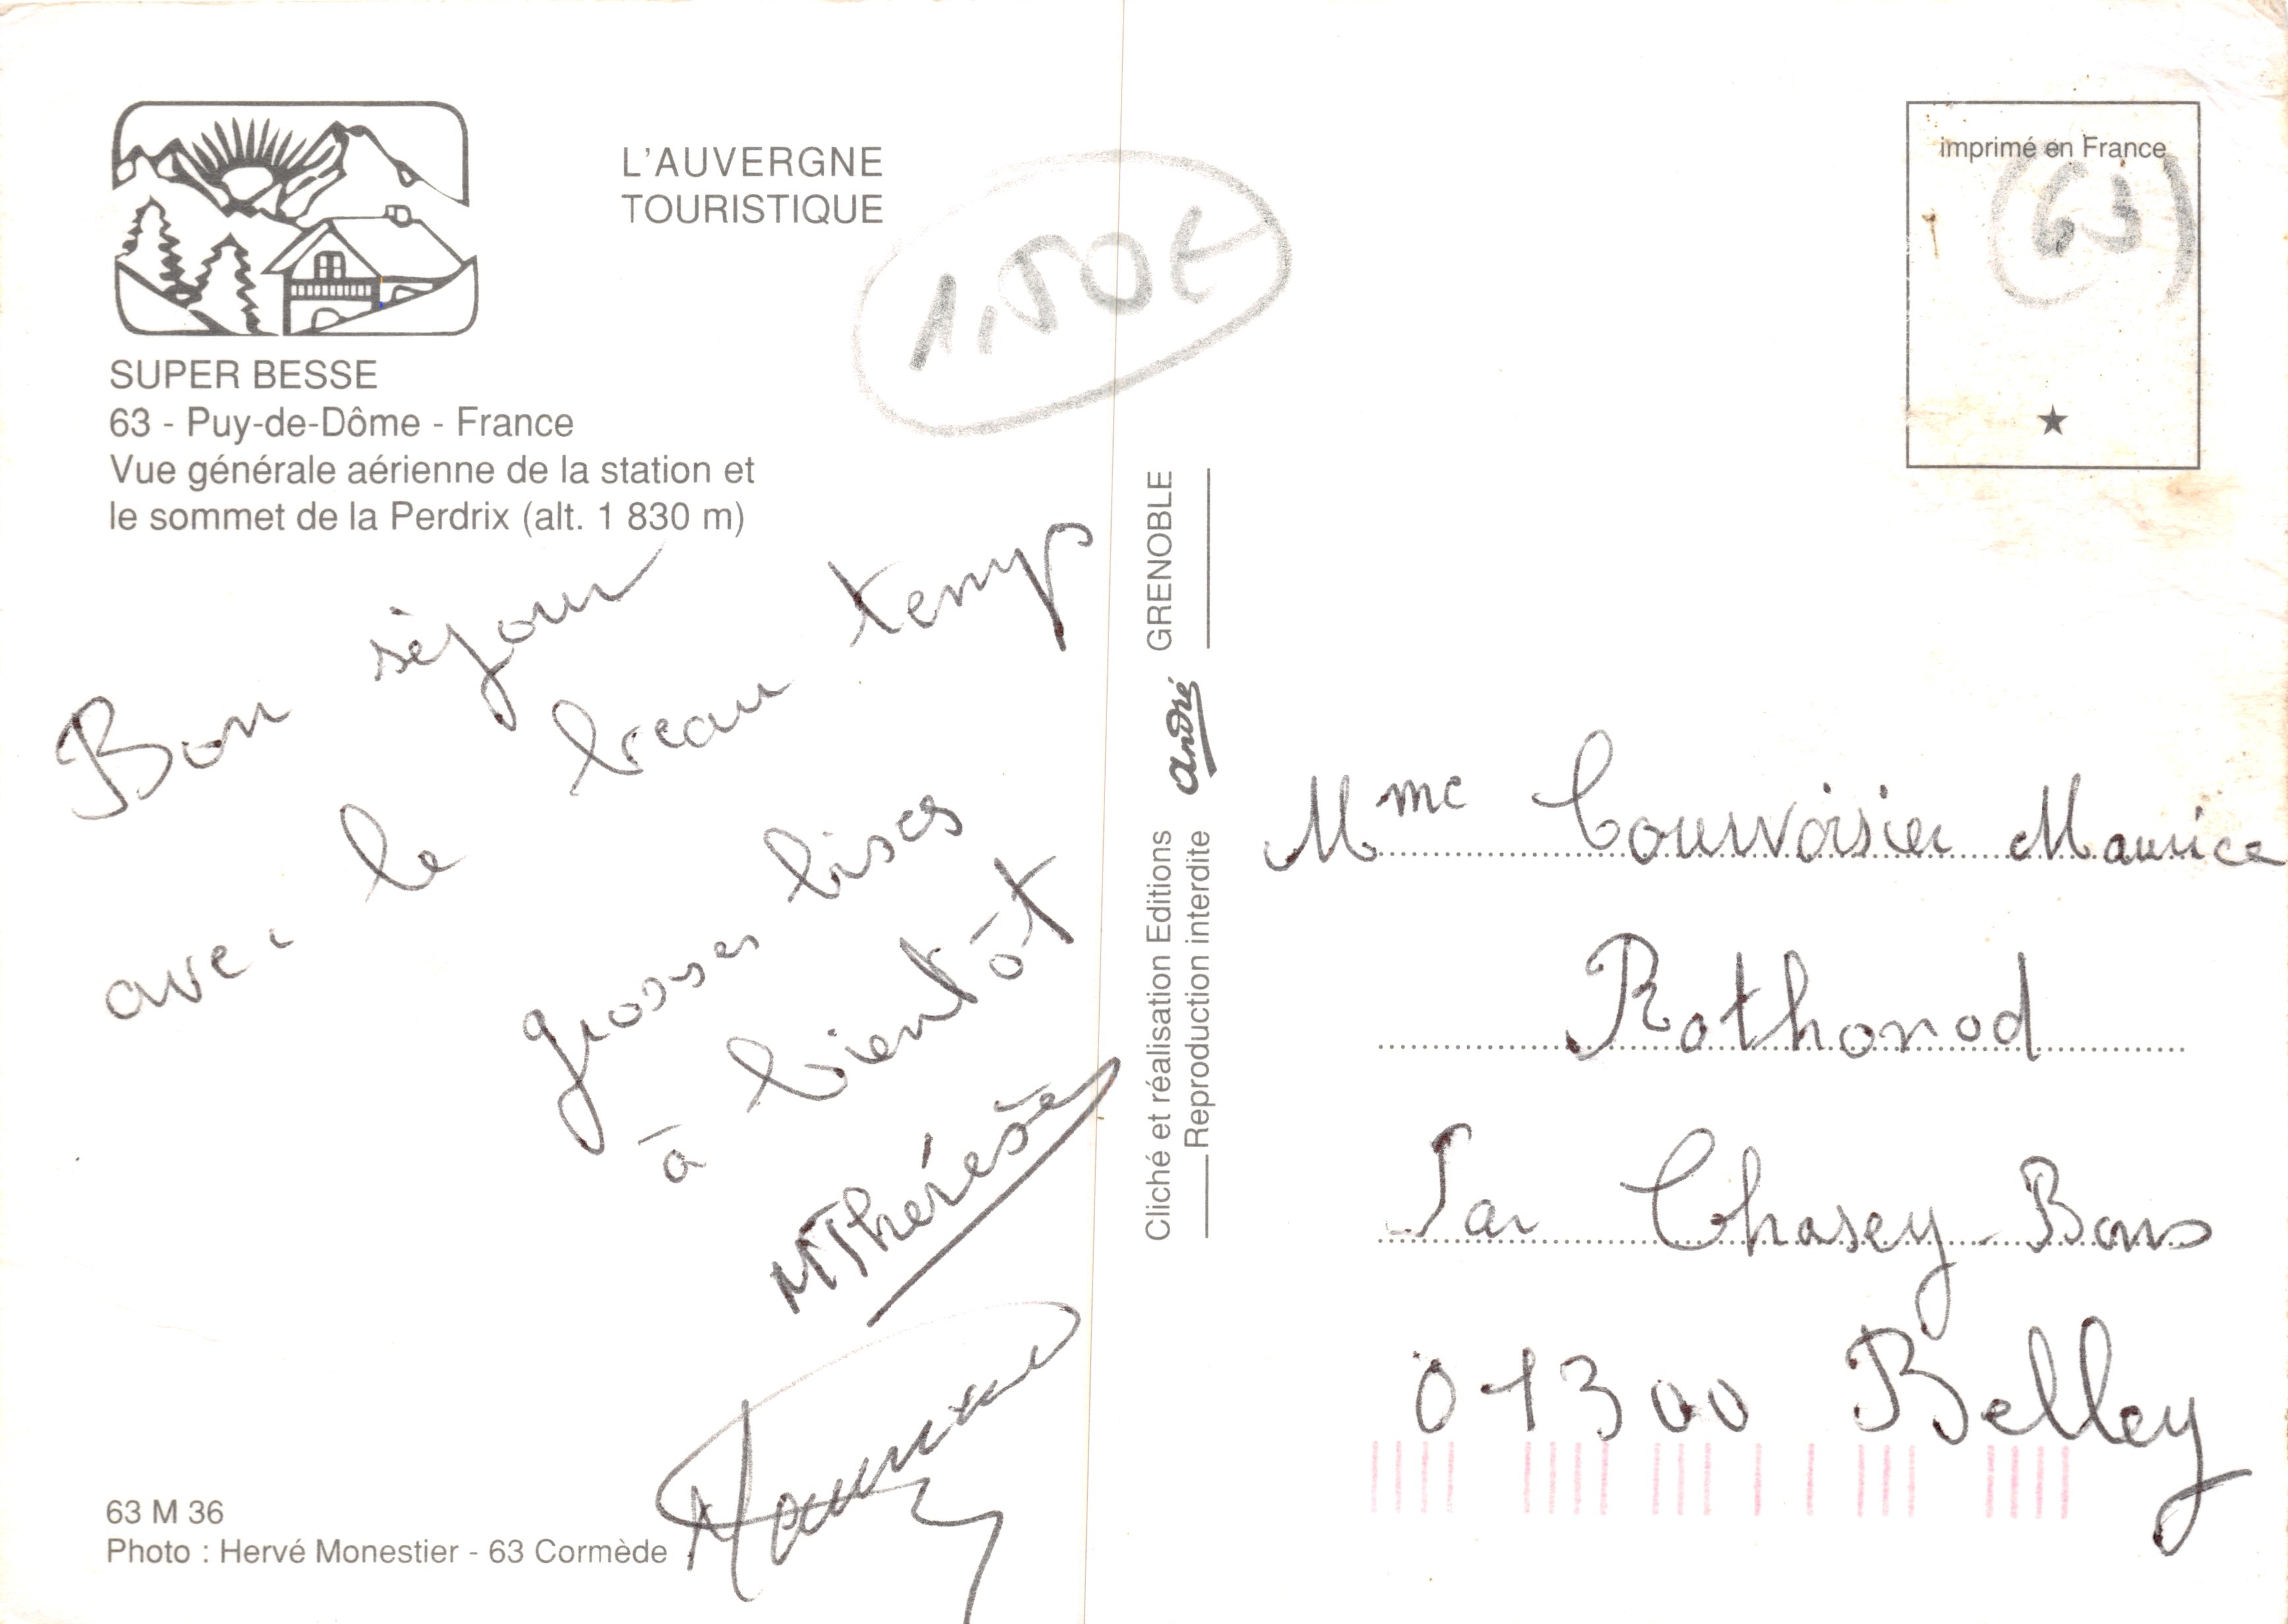 L'AUVERGNE
TOURISTIQUE
SUPER BESSE
63 - Puy-de-Dôme - France
Vue générale aérienne de la station et
le sommet de la Perdrix (alt. 1 830 m)
1,50€
Bon séjour
avec le beau temps
grosses bises
à bientôt
MThérèse
63 M 36
Photo : Hervé Monestier - 63 Cormède
Cliché et réalisation Editions andré GRENOBLE
Reproduction interdite
imprimé en France
(63)
Mme Courvoisier Maurice
Rothonod
Par Chasey-Bons
01300 Belley